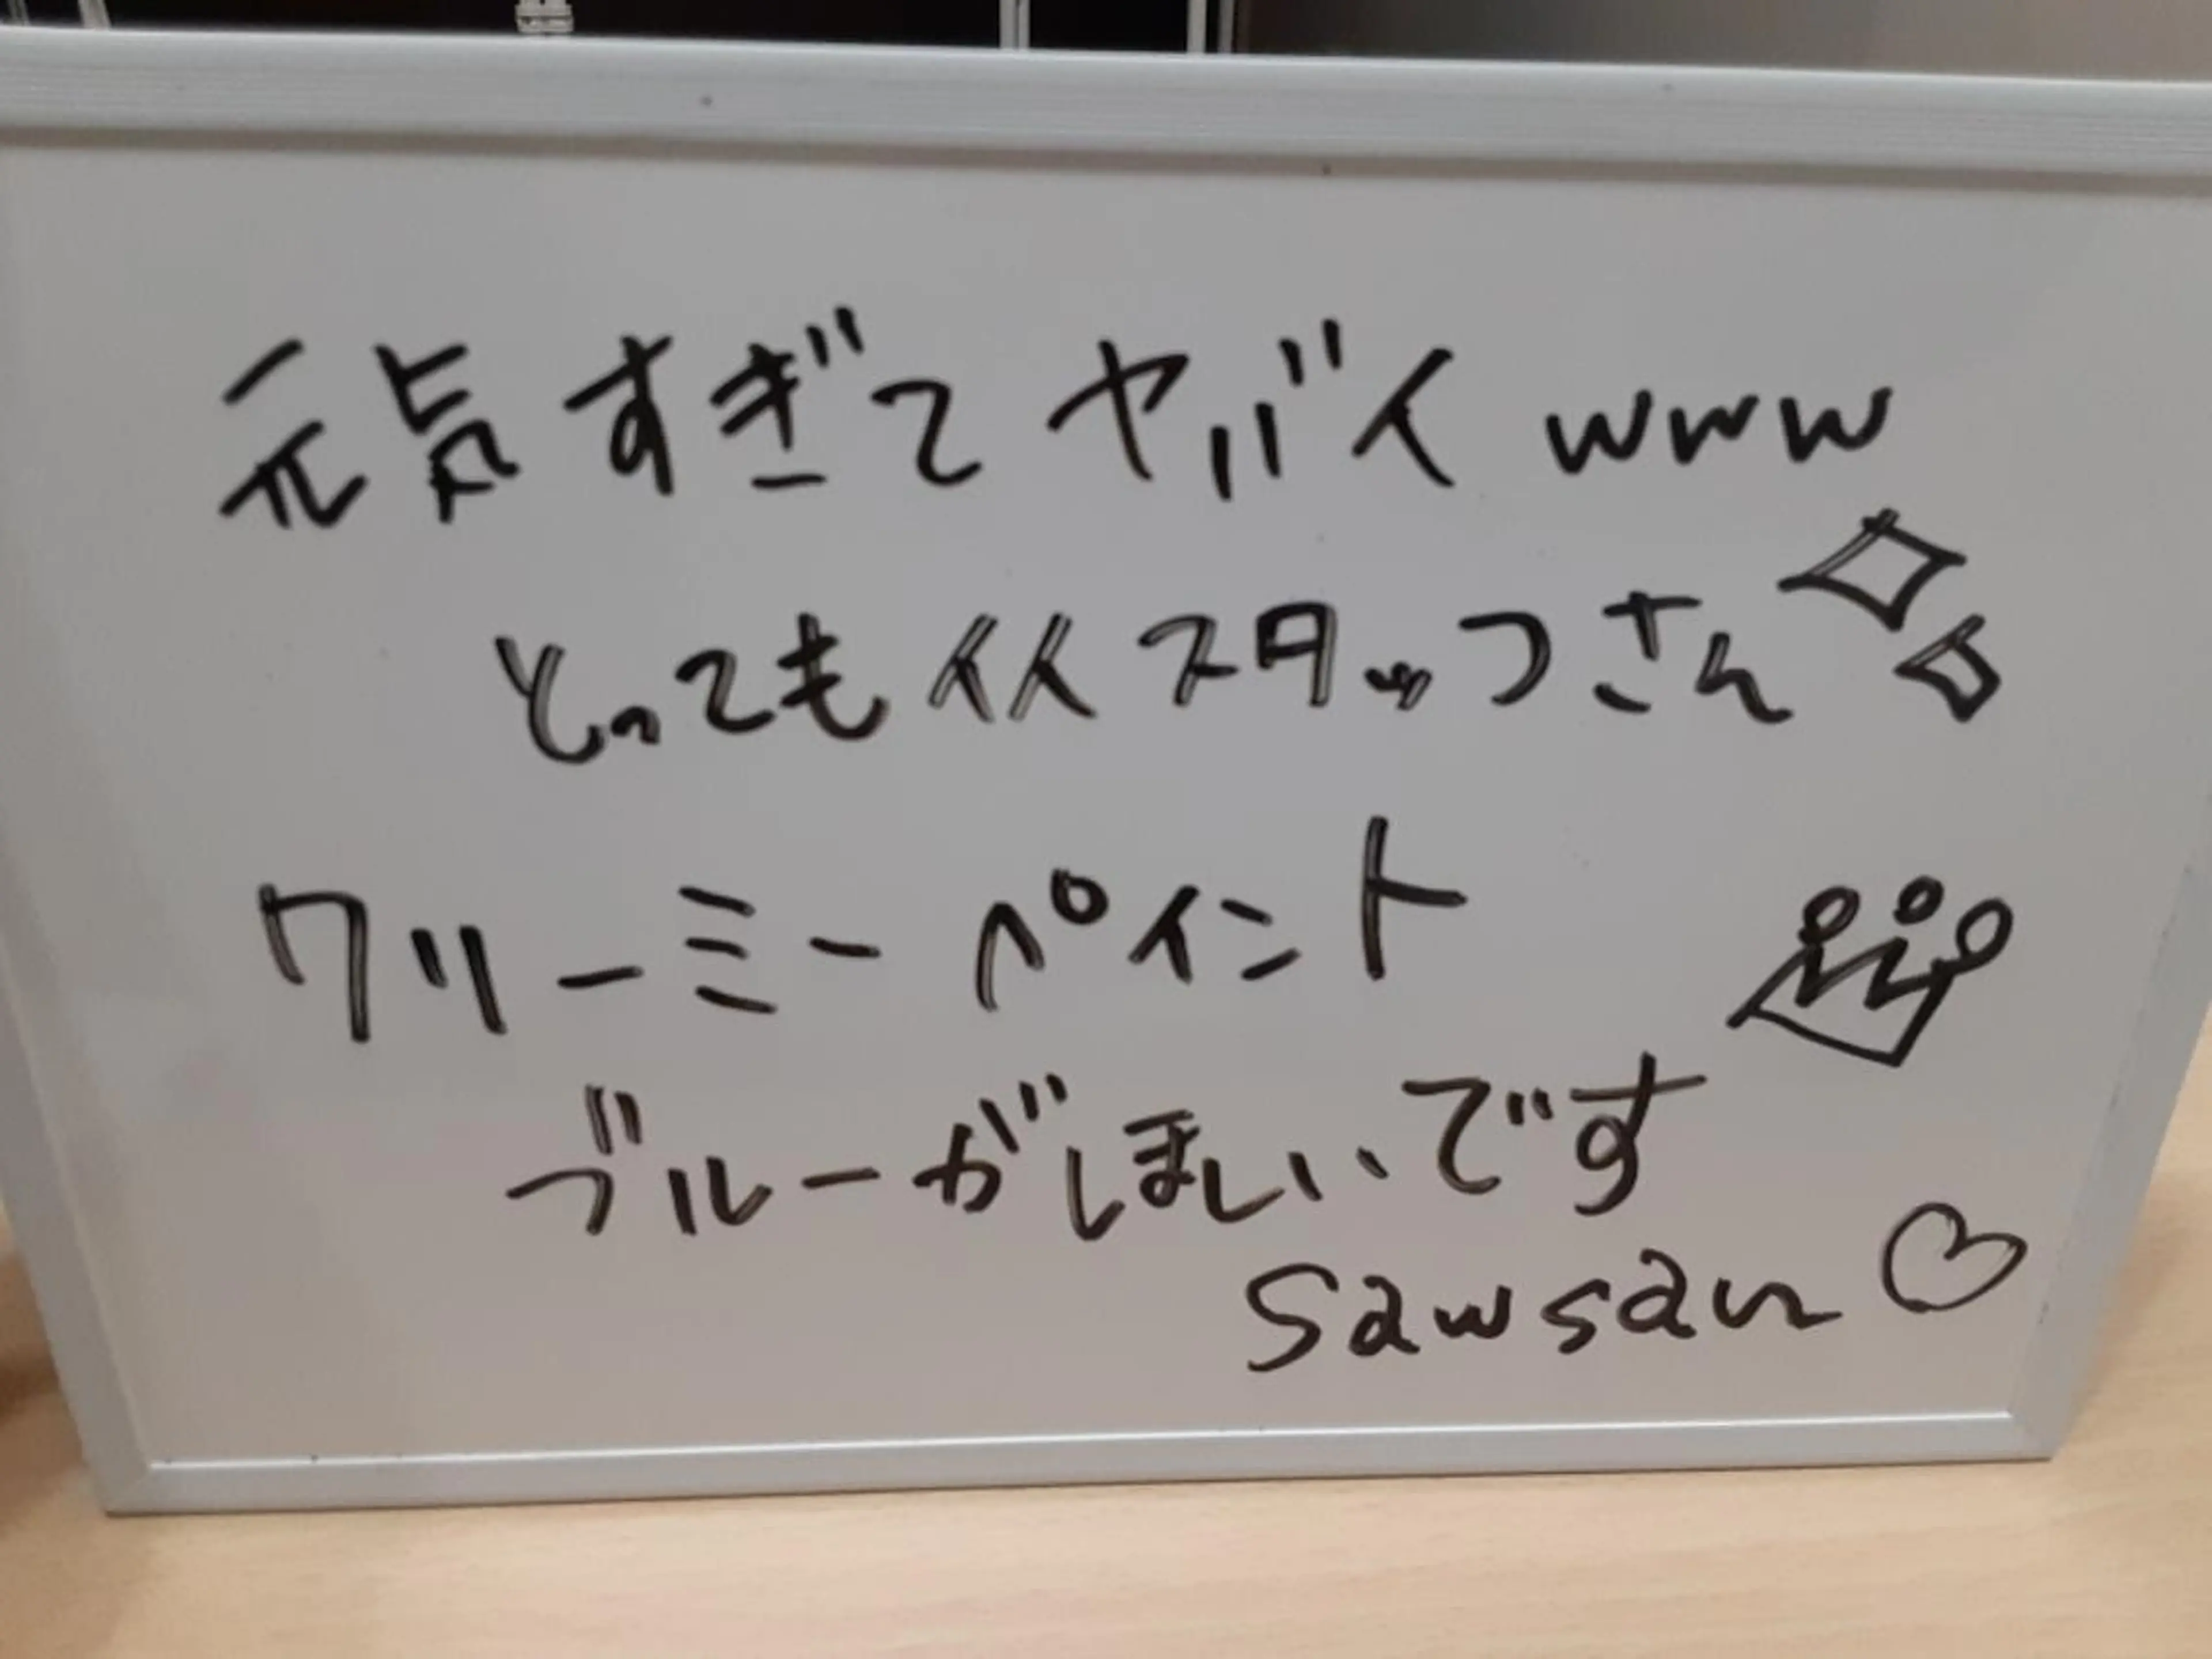 元気すぎてヤバイwww
とってもイイスタッフさん
クリーミーペイント
ブルーがしほしいです
sawsan